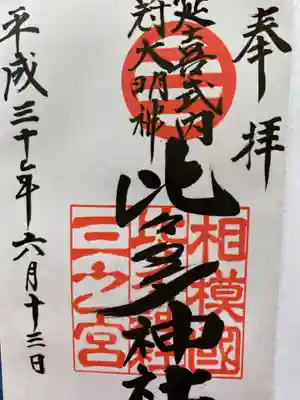 奉拝
延喜式内
冠大明神
比々多神社
相模國
三之宮
平成三十年六月十三日